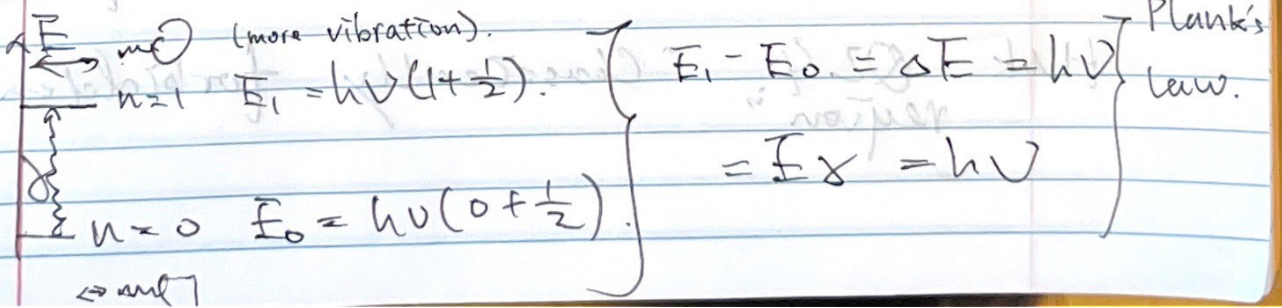 E (more vibration).
n=1 E₁ = hν(1+½).
γ
n=0 E₀ = hν(0+½).
E₁ - E₀ = ΔE = hν
= Eγ = hν
Plank's
law.